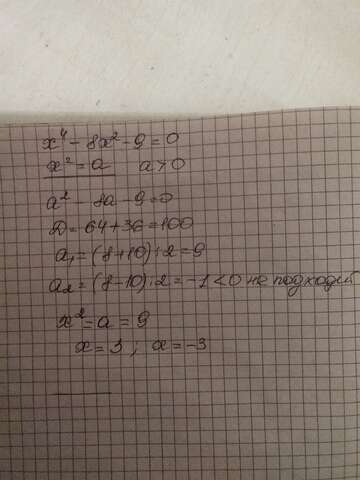 x⁴ - 8x² - 9 = 0
x² = a a > 0
a² - 8a - 9 = 0
D = 64 + 36 = 100
a₁ = (8+10):2 = 9
a₂ = (8-10):2 = -1 < 0 не подходит
x² = a = 9
x = 3; x = -3